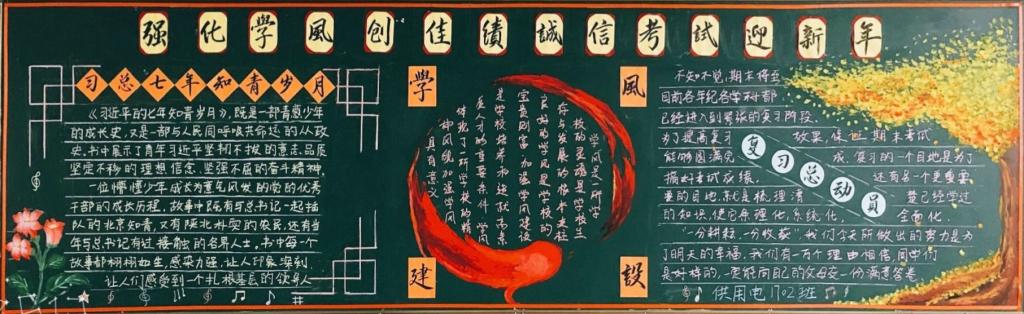 强化學風創佳績誠信考試迎新年
习总七年知青岁月
《习近平的七年知青岁月》，既是一部青葱少年
的成长史，又是一部与人民同呼吸共命运的从政
史。书中展示了青年习近平坚韧不拔的意志品质
坚定不移的理想信念、坚强不屈的奋斗精神，
一位懵懂少年成长为意气风发的党的优秀
干部的成长历程，故事中既有与总书记一起插
队的北京知青，又有陕北朴实的农民，还有当
年与总书记有过接触的各界人士，书中每一个
故事都栩栩如生，感染力强，让人印象深刻，
让人们感受到一个扎根基层的领导人
學
風
建
設
学风是一所学
校的灵魂是学校生
存与发展的根本支柱
良好的学风是学校的
宝贵财富加强学风建设
是学校培养和造就高素
质人才的重要条件学风
体现了一所学校的精
神风貌加强学风
具有意义
不知不觉，期末将至
目前各年纪各学科都
已经进入到紧张的复习阶段。
为了提高复习 效果，保证期末考试
能够圆满完 成，复习的一个目地是为了
搞好考试应接， 还有另一个更重要
的目地，就是梳理清 楚已经学过
的知识，使它条理化，系统化， 全面化。
复习总动员
“一分耕耘，一分收获”，我们今天所做出的努力是为
了明天的幸福，我们有一万个理由相信同学们
是好样的，一定能向自己的父母交一份满意答卷
供用电1702班